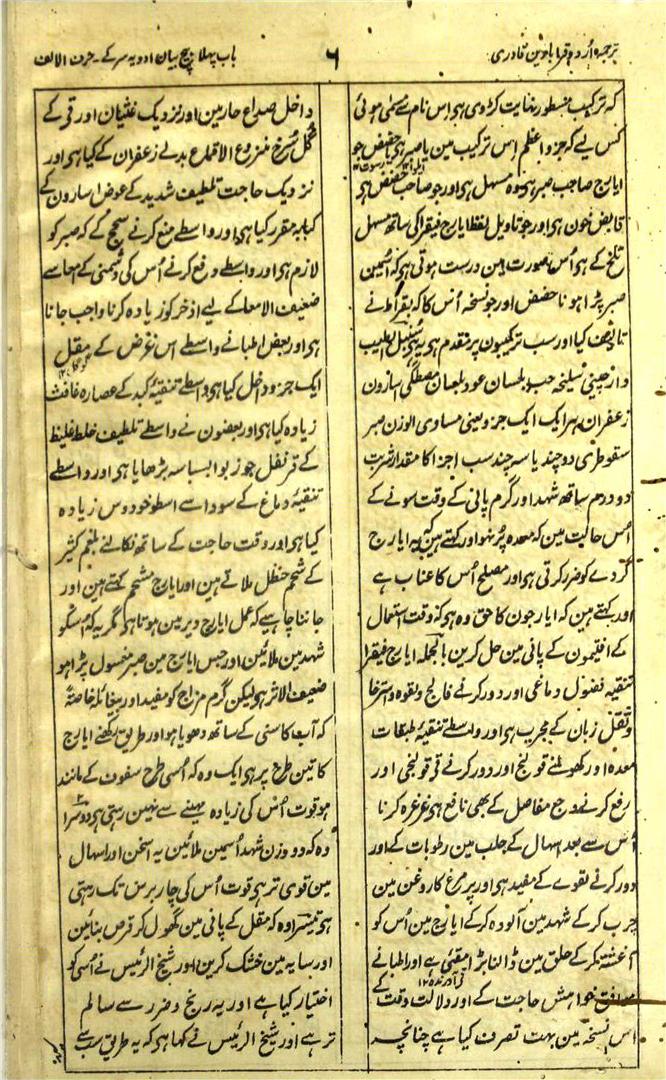 ترجمہ اُردو قرابادین قادری
۶
باب پہلا بیچ بیان ادویہ سر کے ۔ حرف الالف
کہ ترکیب مسطور نہایت کڑوی ہی اس نام سے مسمٰی ہوئی
کس لیے کہ جزو اعظم اس ترکیب مین یا صبر ہی یا حضض جو
ایارج صاحب صبر ہی وہ مسہل ہی اور جو صاحب حضض ہی
قابض خون ہی اور جو تاویل لفظ ایارج فیقرا کی ساتھ مسہل
تلخ کے ہی اُس صورت مین درست ہوتی ہی کہ اسمین
صبر پڑا ہو نا حضض اور جو نسخہ اُس کا کہ بقراط نے
تالیف کیا اور سب ترکیبون پر مقدم ہی یہ ہی سنبل الطیب
دارچینی سلیخہ حب بلسان عود بلسان مصطگی اسارون
زعفران ہر ایک ایک جزو یعنی مساوی الوزن صبر
سقوطری دو چند یا سہ چند سب اجزا کا مقدار شربت
دو درم ساتھ شہد اور گرم پانی کے وقت سونے کے
اُس حالت مین کہ معدہ پُر نہو اور کہتے ہین کہ یہ ایارج
گردے کو ضرر کرتی ہی اور مصلح اُس کا عناب ہے
اور کہتے ہین کہ ایارجون کا حق وہ ہی کہ وقت استعمال
کے افتیمون کے پانی مین حل کرین بالجملہ ایارج فیقرا
تنقیہ فضول دماغی اور دور کرنے فالج و لقوہ و استرخا
و ثقل زبان کے مجرب ہی اور واسطے تنقیۂ طبقات
معدہ اور کھولنے قولنج اور دور کرنے قے قولنجی اور
رفع کرنے وجع مفاصل کے بھی نافع ہی غرغرہ کرنا
اُس سے بعد اسہال کے جلب مین رطوبات کے اور
دور کرنے لقوے کے مفید ہی اور پر مرغ کا روغن مین
چرب کرکے شہد مین آلودہ کرکے ایارج مین اُس کو
آغشتہ کرکے حلق مین ڈالنا بڑا مقئی ہے اور اطبا نے
موافق خواہش حاجت کے اور دلالت وقت کے
اس نسخہ مین بہت تصرف کیا ہے چنانچہ
داخل صداع حار مین اور نزدیک غثیان اور قی کے
گل سُرخ منزوع الاقماع بدلے زعفران کے کیا ہی اور
نزدیک حاجت تلطیف شدید کے عوض اسارون کے
کبابہ مقرر کیا ہی اور واسطے منع کرنے سحج کے کہ صبر کو
لازم ہی اور واسطے دفع کرنے اُس کی دشمنی کے امعا سے
ضعیف الامعا کے لیے اذخر کو زیادہ کرنا واجب جانا
ہی اور بعض اطبا نے واسطے اس غرض کے مقل
ایک جزو داخل کیا ہی واسطے تنقیۂ کبد کے عصارہ غافث
زیادہ کیا ہی اور بعضون نے واسطے تلطیف خلط غلیظ
کے قرنفل جوز بوا بسباسہ بڑھایا ہی اور واسطے
تنقیۂ دماغ کے سودا سے اسطوخودوس زیادہ
کیا ہی اور وقت حاجت کے ساتھ نکالنے بلغم کثیر
کے شحم حنظل ملاتے ہین اور ایارج مشحم کہتے ہین اور
جاننا چاہیے کہ عمل ایارج دیر مین ہوتا ہی مگر یہ کہ اسکو
شہد مین ملائین اور جس ایارج مین صبر مغسول پڑا ہو
ضعیف الاثر ہی لیکن گرم مزاج کو مفید اور بیغائلہ خاصۃً
کہ آب کاسنی کے ساتھ دھویا ہو اور طریق رکھنے ایارج
کا تین طرح پر ہی ایک وہ کہ اُسی طرح سفوف کے مانند
ہو قوت اُس کی زیادہ مہینے سے نہین رہتی ہی دوسرا
وہ کہ دو وزن شہد اُسمین ملائین یہ اسخن اور اسہال
مین قوی تر ہی قوت اُس کی چار برس تک رہتی
ہی تیسرا وہ کہ مقل کے پانی مین گھول کر قرص بنائین
اور سایہ مین خشک کرین اور شیخ الرئیس نے اُسی کو
اختیار کیا ہے اور یہ رنج و ضرر سے سالم
تر ہے اور شیخ الرئیس نے کہا ہی کہ یہ طریق سب سے